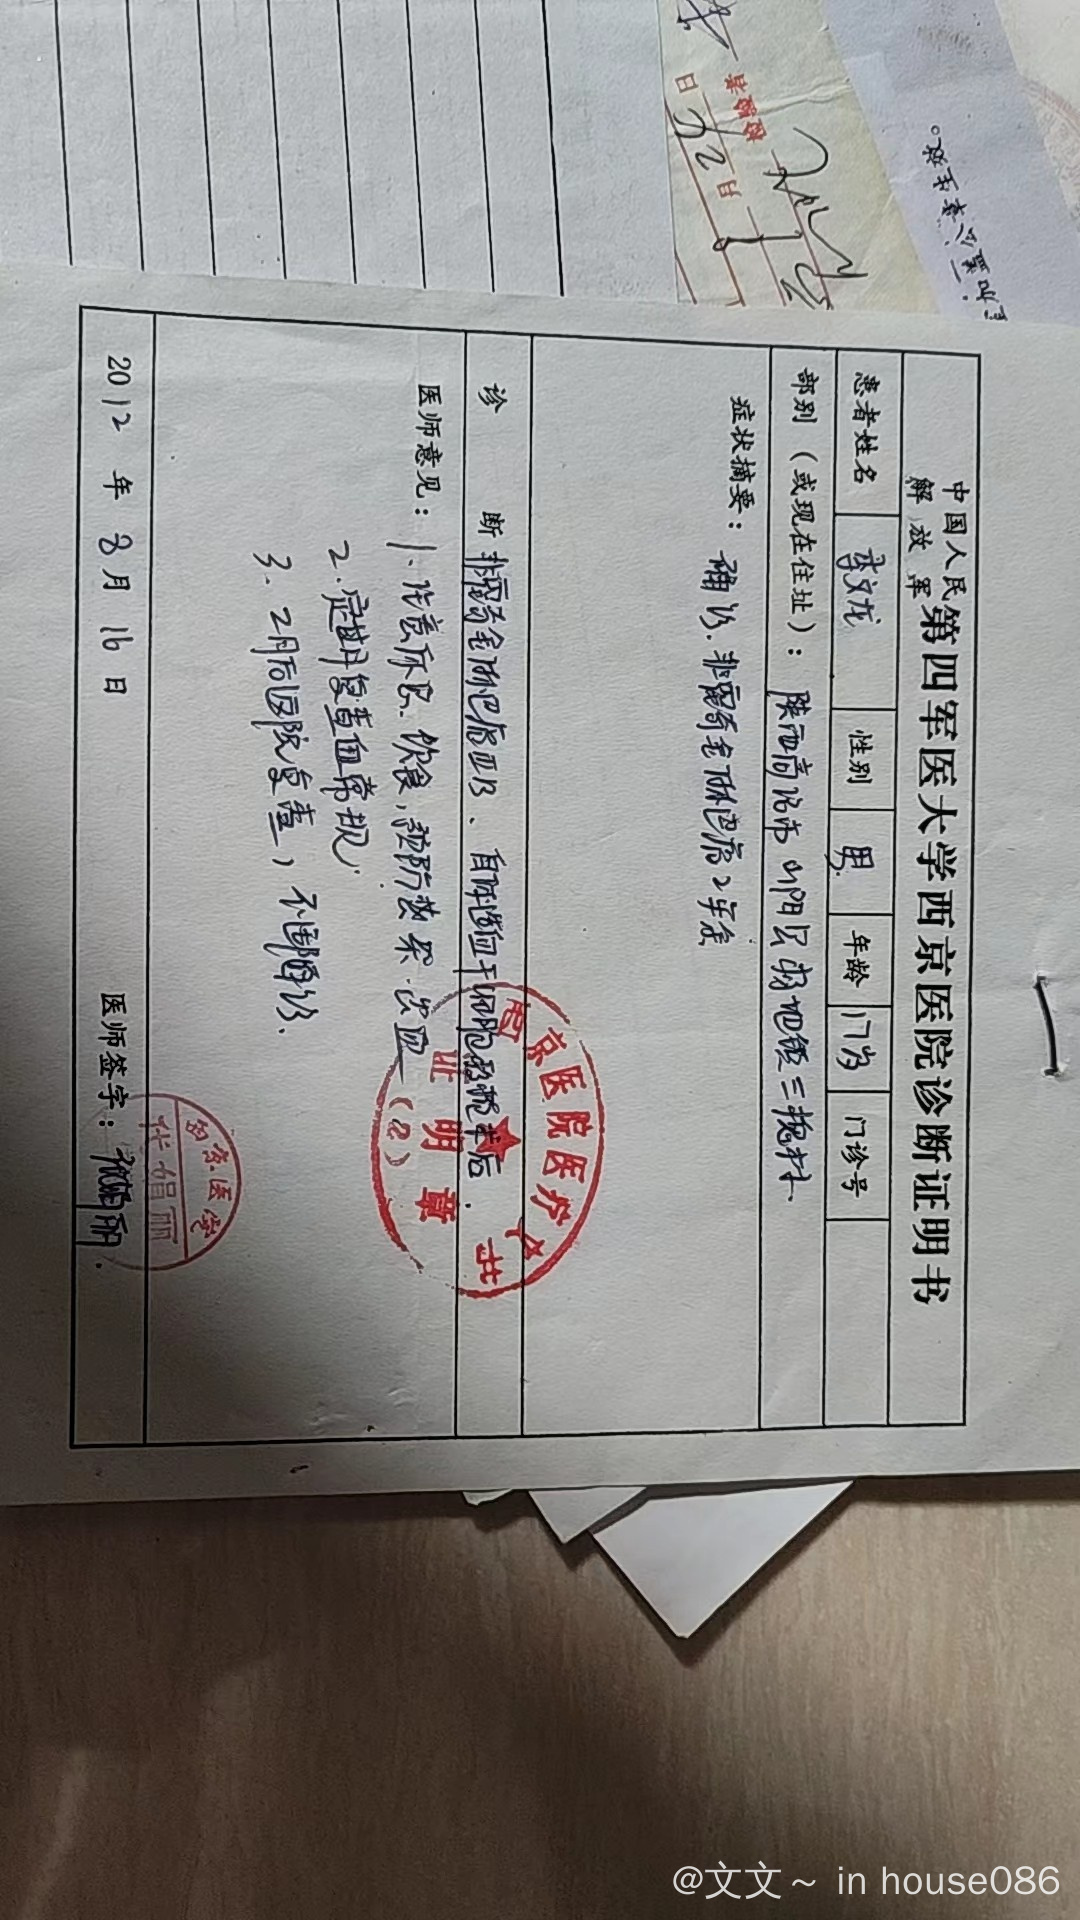 中国人民
解放军
第四军医大学西京医院诊断证明书
患者姓名 李文龙 性别 男 年龄 17岁 门诊号
部别（或现在住址）：陕西商洛市山阳县 镇三槐村
症状摘要：
确诊非霍奇金淋巴瘤2年余
诊 断 非霍奇金淋巴瘤 、自体造血干细胞移植术后.
医师意见：1、注意休息.饮食，预防感染.出血
2.定期复查血常规.
3.2月后医院复查，不适随诊.
2012 年 8 月 16 日 医师签字：
京医院医疗
证明章
(2)
西京医院
日
月
检验者
加盖公章
@文文～ in house086